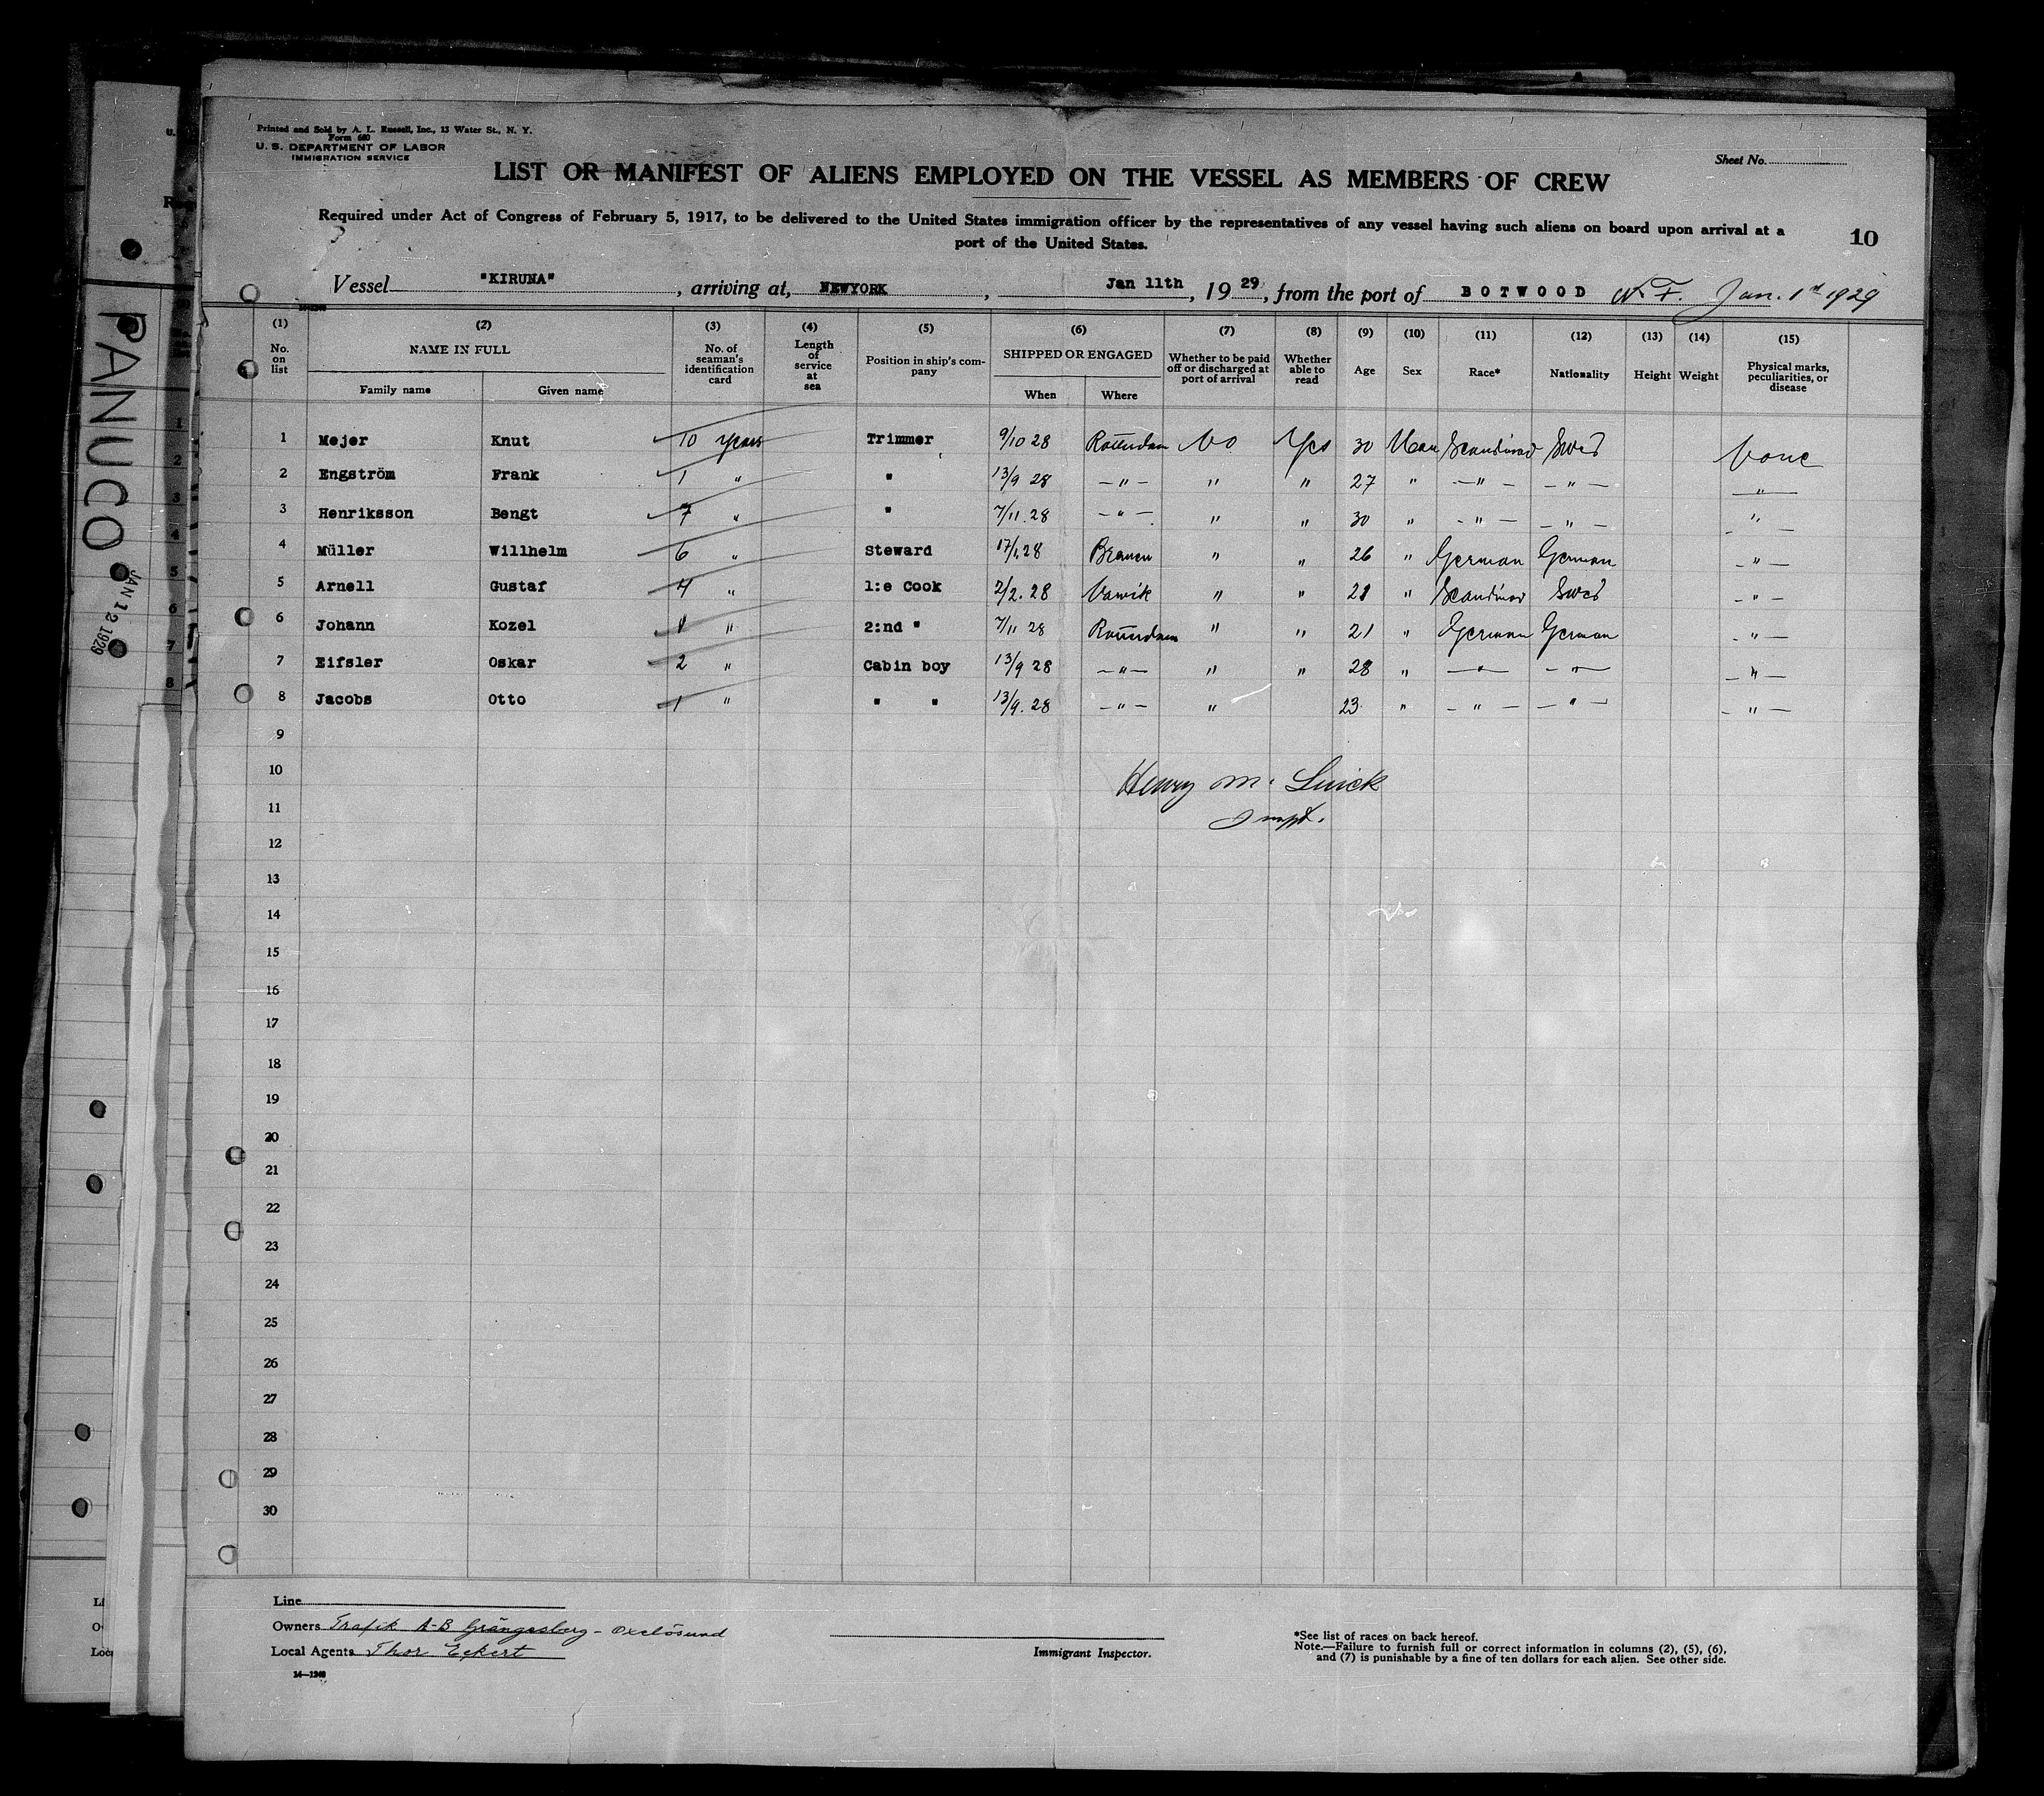 Printed and Sold by A. L. Russell, Inc., 13 Water St., N. Y.
Form 680
U. S. DEPARTMENT OF LABOR
IMMIGRATION SERVICE
Sheet No.
LIST OR MANIFEST OF ALIENS EMPLOYED ON THE VESSEL AS MEMBERS OF CREW
Required under Act of Congress of February 5, 1917, to be delivered to the United States immigration officer by the representatives of any vessel having such aliens on board upon arrival at a
port of the United States.
10
Vessel "KIRUNA", arriving at, NEWYORK, Jan 11th, 1929, from the port of BOTWOOD N. F. Jan. 1st 1929
14-1240
(1) (2) (3) (4) (5) (6) (7) (8) (9) (10) (11) (12) (13) (14) (15)
No. on list NAME IN FULL Family name Given name No. of seaman's identification card Length of service at sea Position in ship's company SHIPPED OR ENGAGED When Where Whether to be paid off or discharged at port of arrival Whether able to read Age Sex Race* Nationality Height Weight Physical marks, peculiarities, or disease
1 Mejer Knut 10 years Trimmer 9/10 28 Rotterdam No Yes 30 Man Scandinav Swed None
2 Engström Frank 1 " " 13/9 28 - " - " " 27 " - " - - " - "
3 Henriksson Bengt 7 " " 7/11.28 - " - " " 30 " - " - - " - " -
4 Müller Willhelm 6 " Steward 17/1 28 Bremen " " 26 " German German - " -
5 Arnell Gustaf 4 " 1:e Cook 2/2.28 Narvik " " 21 " Scandinav Swed - " -
6 Johann Kozel 1 " 2:nd " 7/11 28 Rotterdam " " 21 " German German - " -
7 Eifsler Oskar 2 " Cabin boy 13/9 28 - " - " " 28 " - " - - " - - " -
8 Jacobs Otto 1 " " " 13/9.28 - " - " 23 " - " - - " - - " -
9
10
Henry M. Quick
11
12
13
14
15
16
17
18
19
20
21
22
23
24
25
26
27
28
29
30
Line
Owners Trafik A-B Grängesberg - Oxelösund
Local Agents Thor Eckert
14-1240
Immigrant Inspector.
*See list of races on back hereof.
Note.—Failure to furnish full or correct information in columns (2), (5), (6),
and (7) is punishable by a fine of ten dollars for each alien. See other side.
PANUCO
JAN 12 1929
U.
1
2
3
4
5
6
7
8